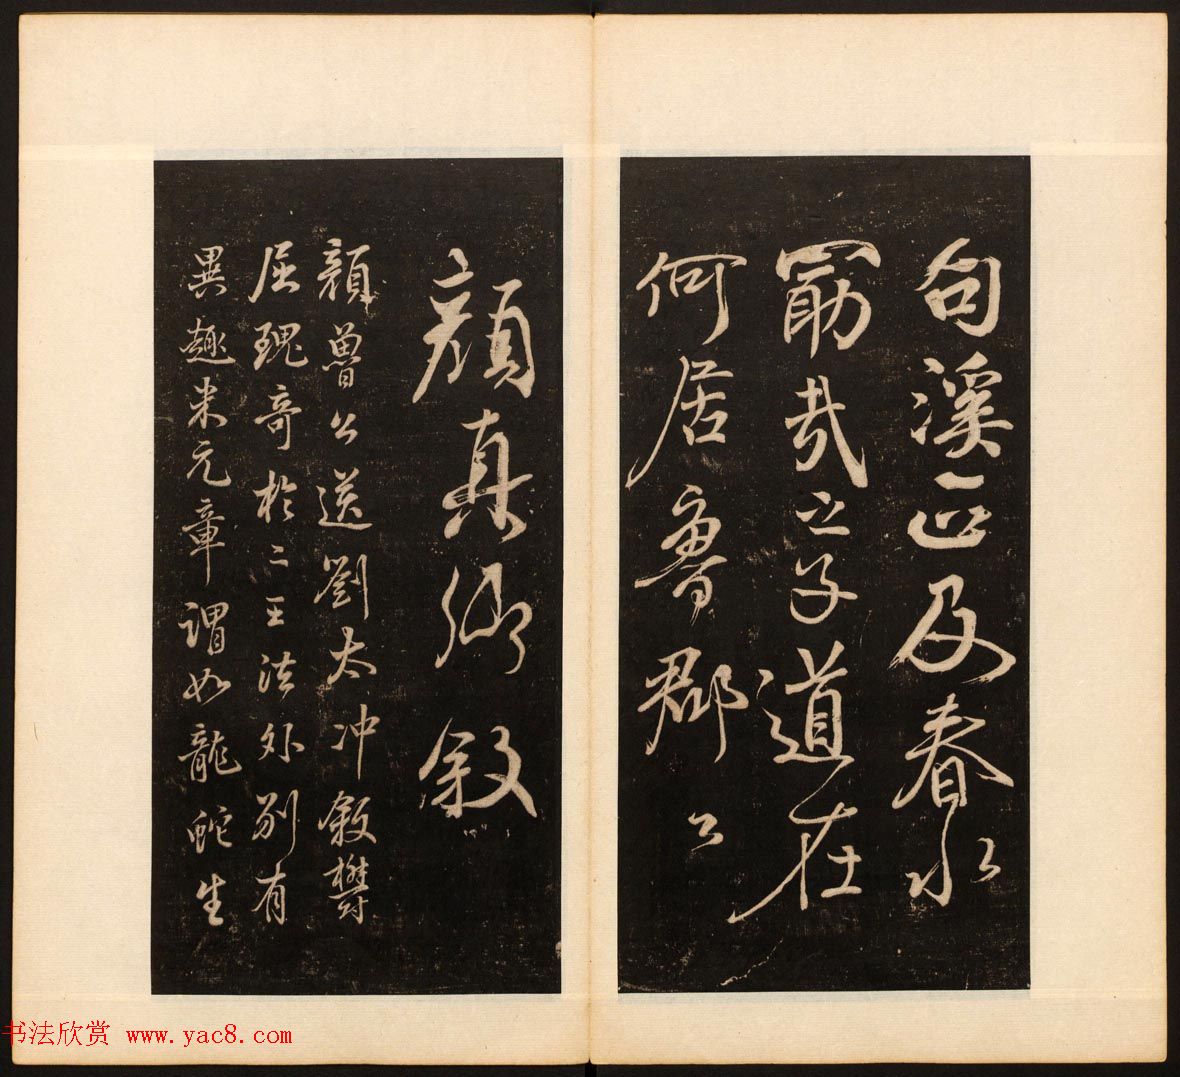 句溪正及春水
勗哉之子道在
何居魯郡公
顏真卿敘
顏魯公送劉太冲敘鬱
屈瑰奇於二王法外別有
異趣米元章謂如龍蛇生
书法欣赏 www.yac8.com